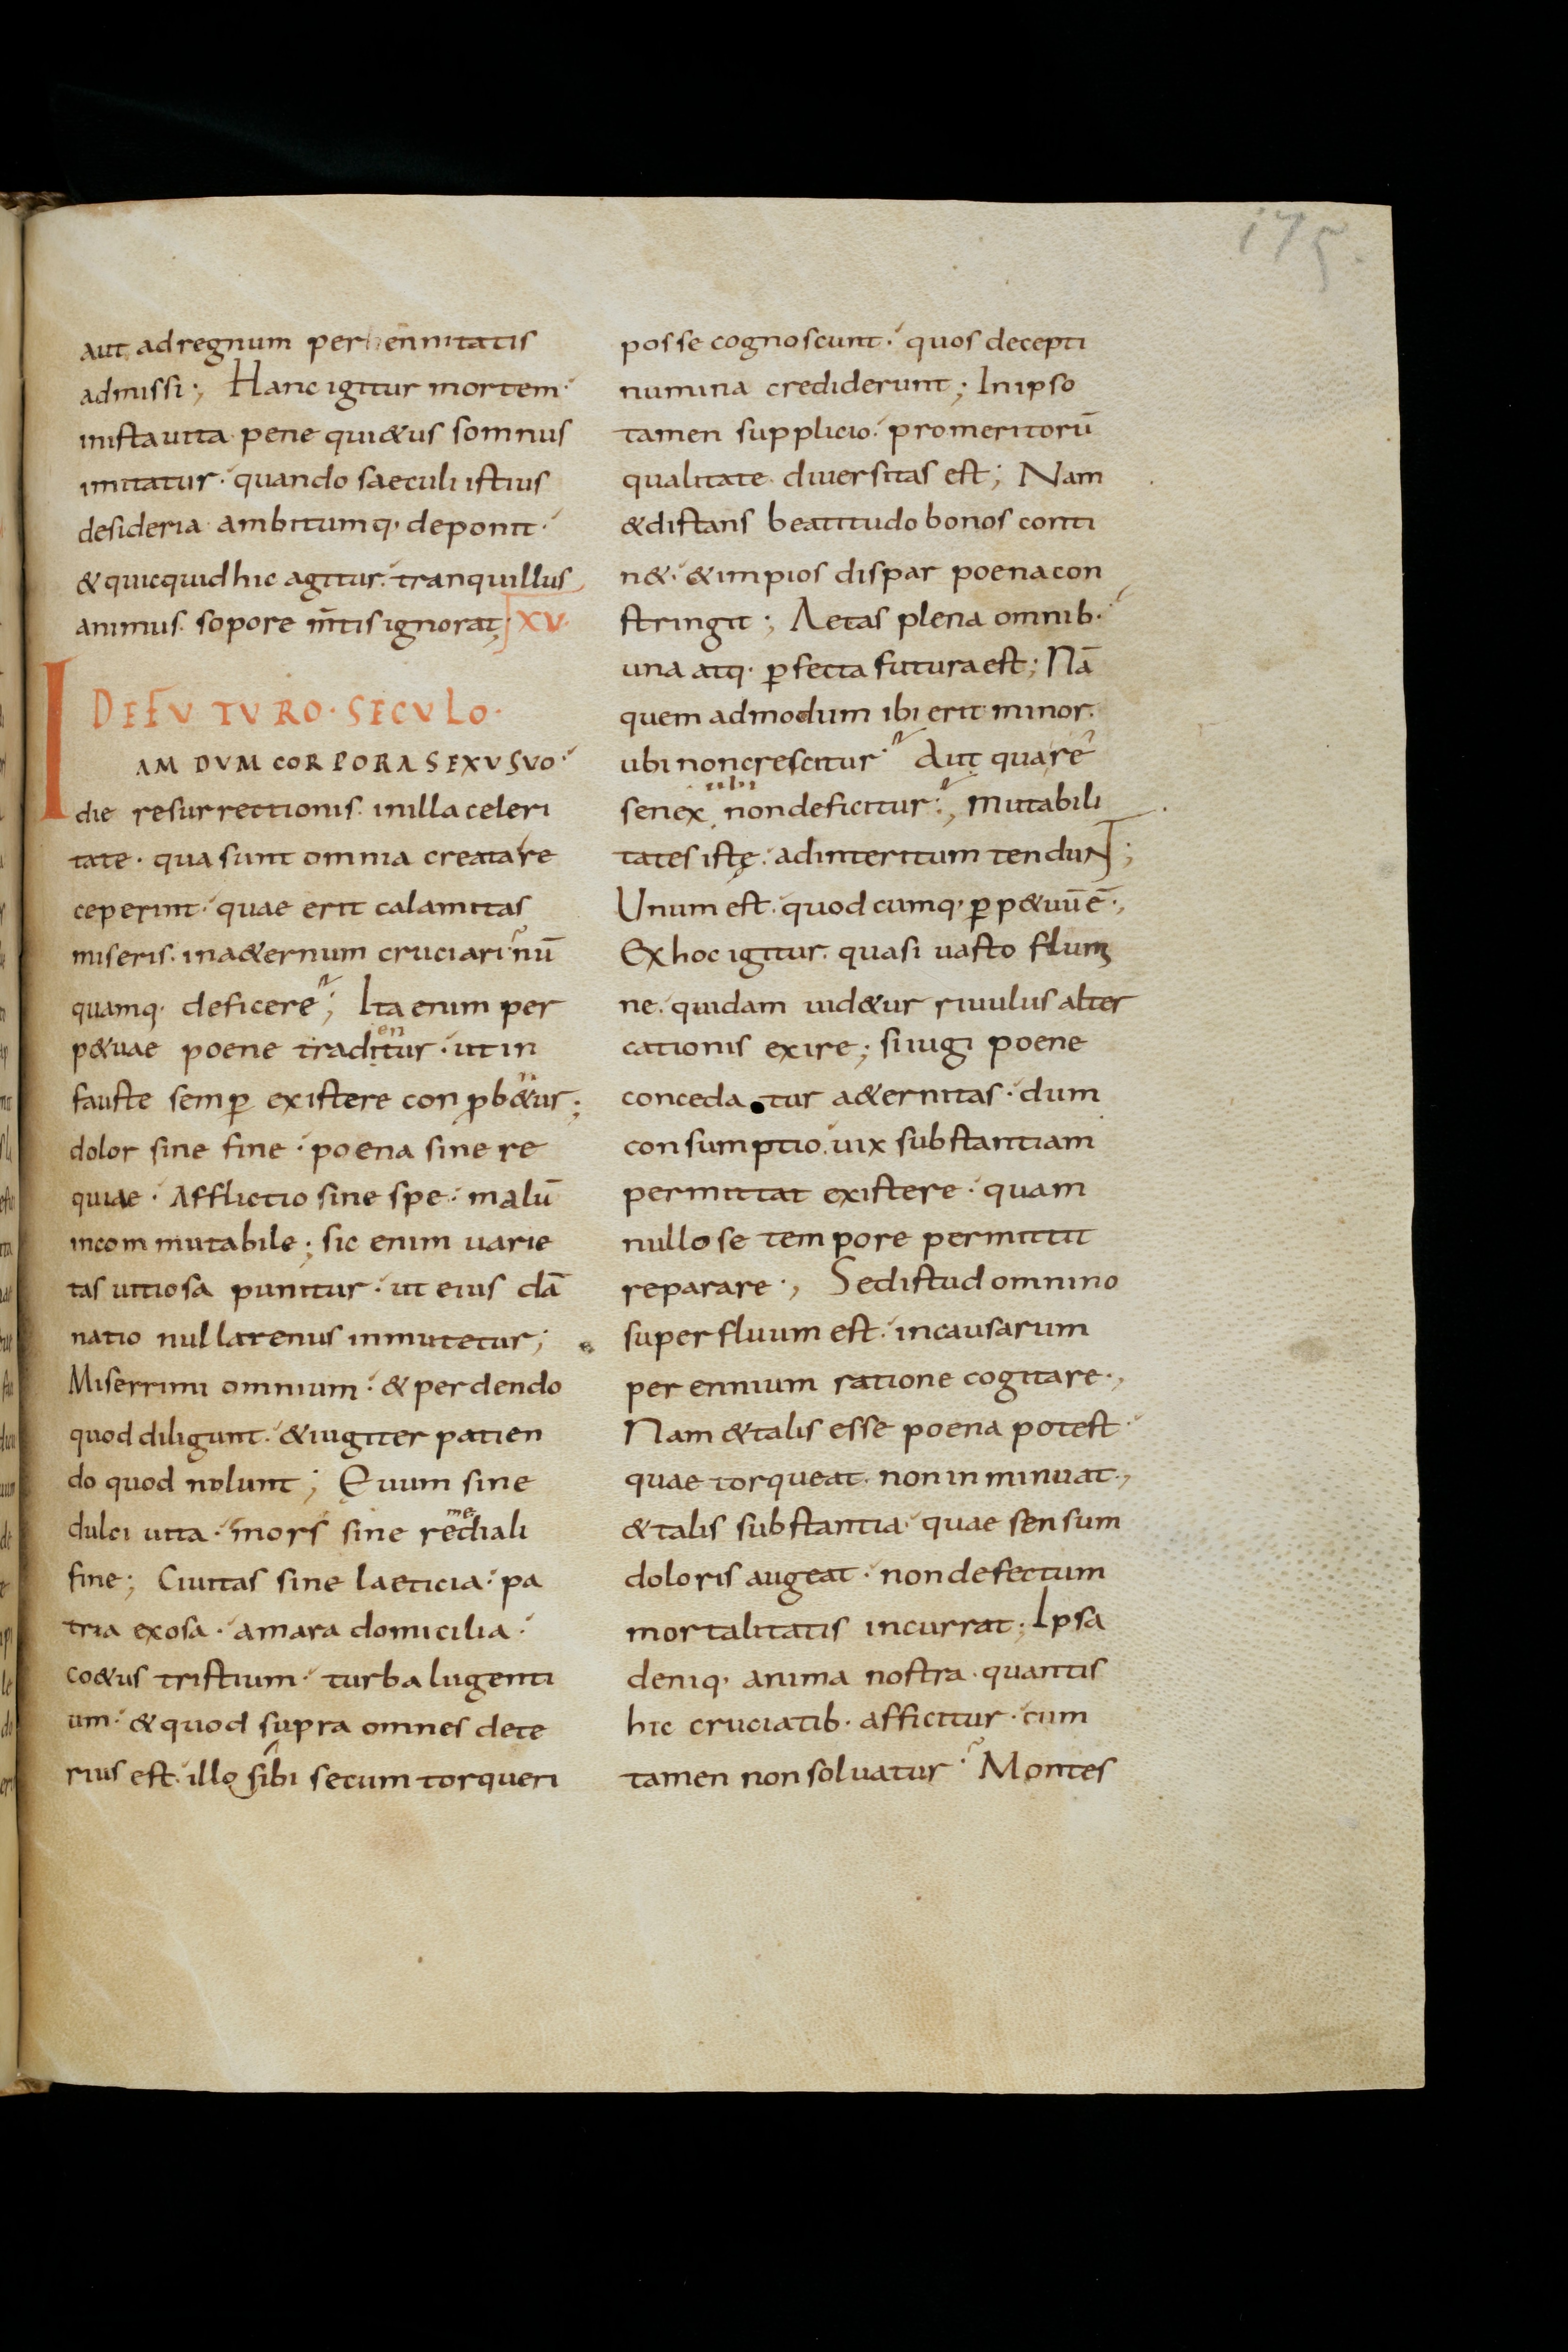 175.
aut ad regnum perhennitatis
admissi; Hanc igitur mortem·
inista uita pene qui&us somnus
imitatur· quando saeculi istius
desideria ambitumq· deponit·
& quicquid hic agitur· tranquillus
animus· sopore mtis ignorat; XV·
DE FUTURO· SECULO·
IAM DUM CORPORA SEXU SUO·
die resurrectionis· in illa celeri
tate· qua sunt omnia creata re
ceperint· quae erit calamitas
miseris· in a&ernum cruciari· nū
quamq· deficere; Ita enim per
p&uae poene traditur· ut in
en
fauste semp existere con pb&ur;
dolor sine fine· poena sine re
quiae· Afflictio sine spe· malū
incommutabile; sic enim uarie
tas uitiosa punitur· ut eius dā
natio nullatenus inmutetur;
Miserrimi omnium· & perdendo
quod diligunt· & iugiter patien
do quod nolunt; Ęuum sine
dulci uita· mors sine rediali
me
fine; Ciuitas sine laeticia· pa
tria exosa· amara domicilia·
co&us tristium· turba lugenti
um· & quod supra omnes dete
rius est· illo sibi secum torqueri
posse cognoscunt· quos decepti
numina crediderunt; In ipso
tamen supplicio· pro meritorū
qualitate diuersitas est; Nam
& distans beatitudo bonos conti
n&· & impios dispar poena con
stringit; Aetas plena omnib·
una atq· pfecta futura est; Nā
quem admodum ibi erit minor·
ubi non crescitur· Aut quare
senex non deficitur·; mutabili
ubi
tates istę· ad interitum tendunt;
Unum est· quod cumq· pp&uū ē·,
Ex hoc igitur· quasi uasto flumi
ne· quidam uid&ur riuulus alter
cationis exire; si iugi poene
conceda tur a&ernitas· dum
consumptio· uix substantiam
permittat existere· quam
nullo se tempore permittit
reparare·, Sed istud omnino
superfluum est· in causarum
perennium ratione cogitare·,
Nam & talis esse poena potest·
quae torqueat· non inminuat·,
& talis substantia· quae sensum
doloris augeat· non defectum
mortalitatis incurrat; Ipsa
deniq· anima nostra· quantis
hic cruciatib· afficitur· cum
tamen non soluatur· Montes